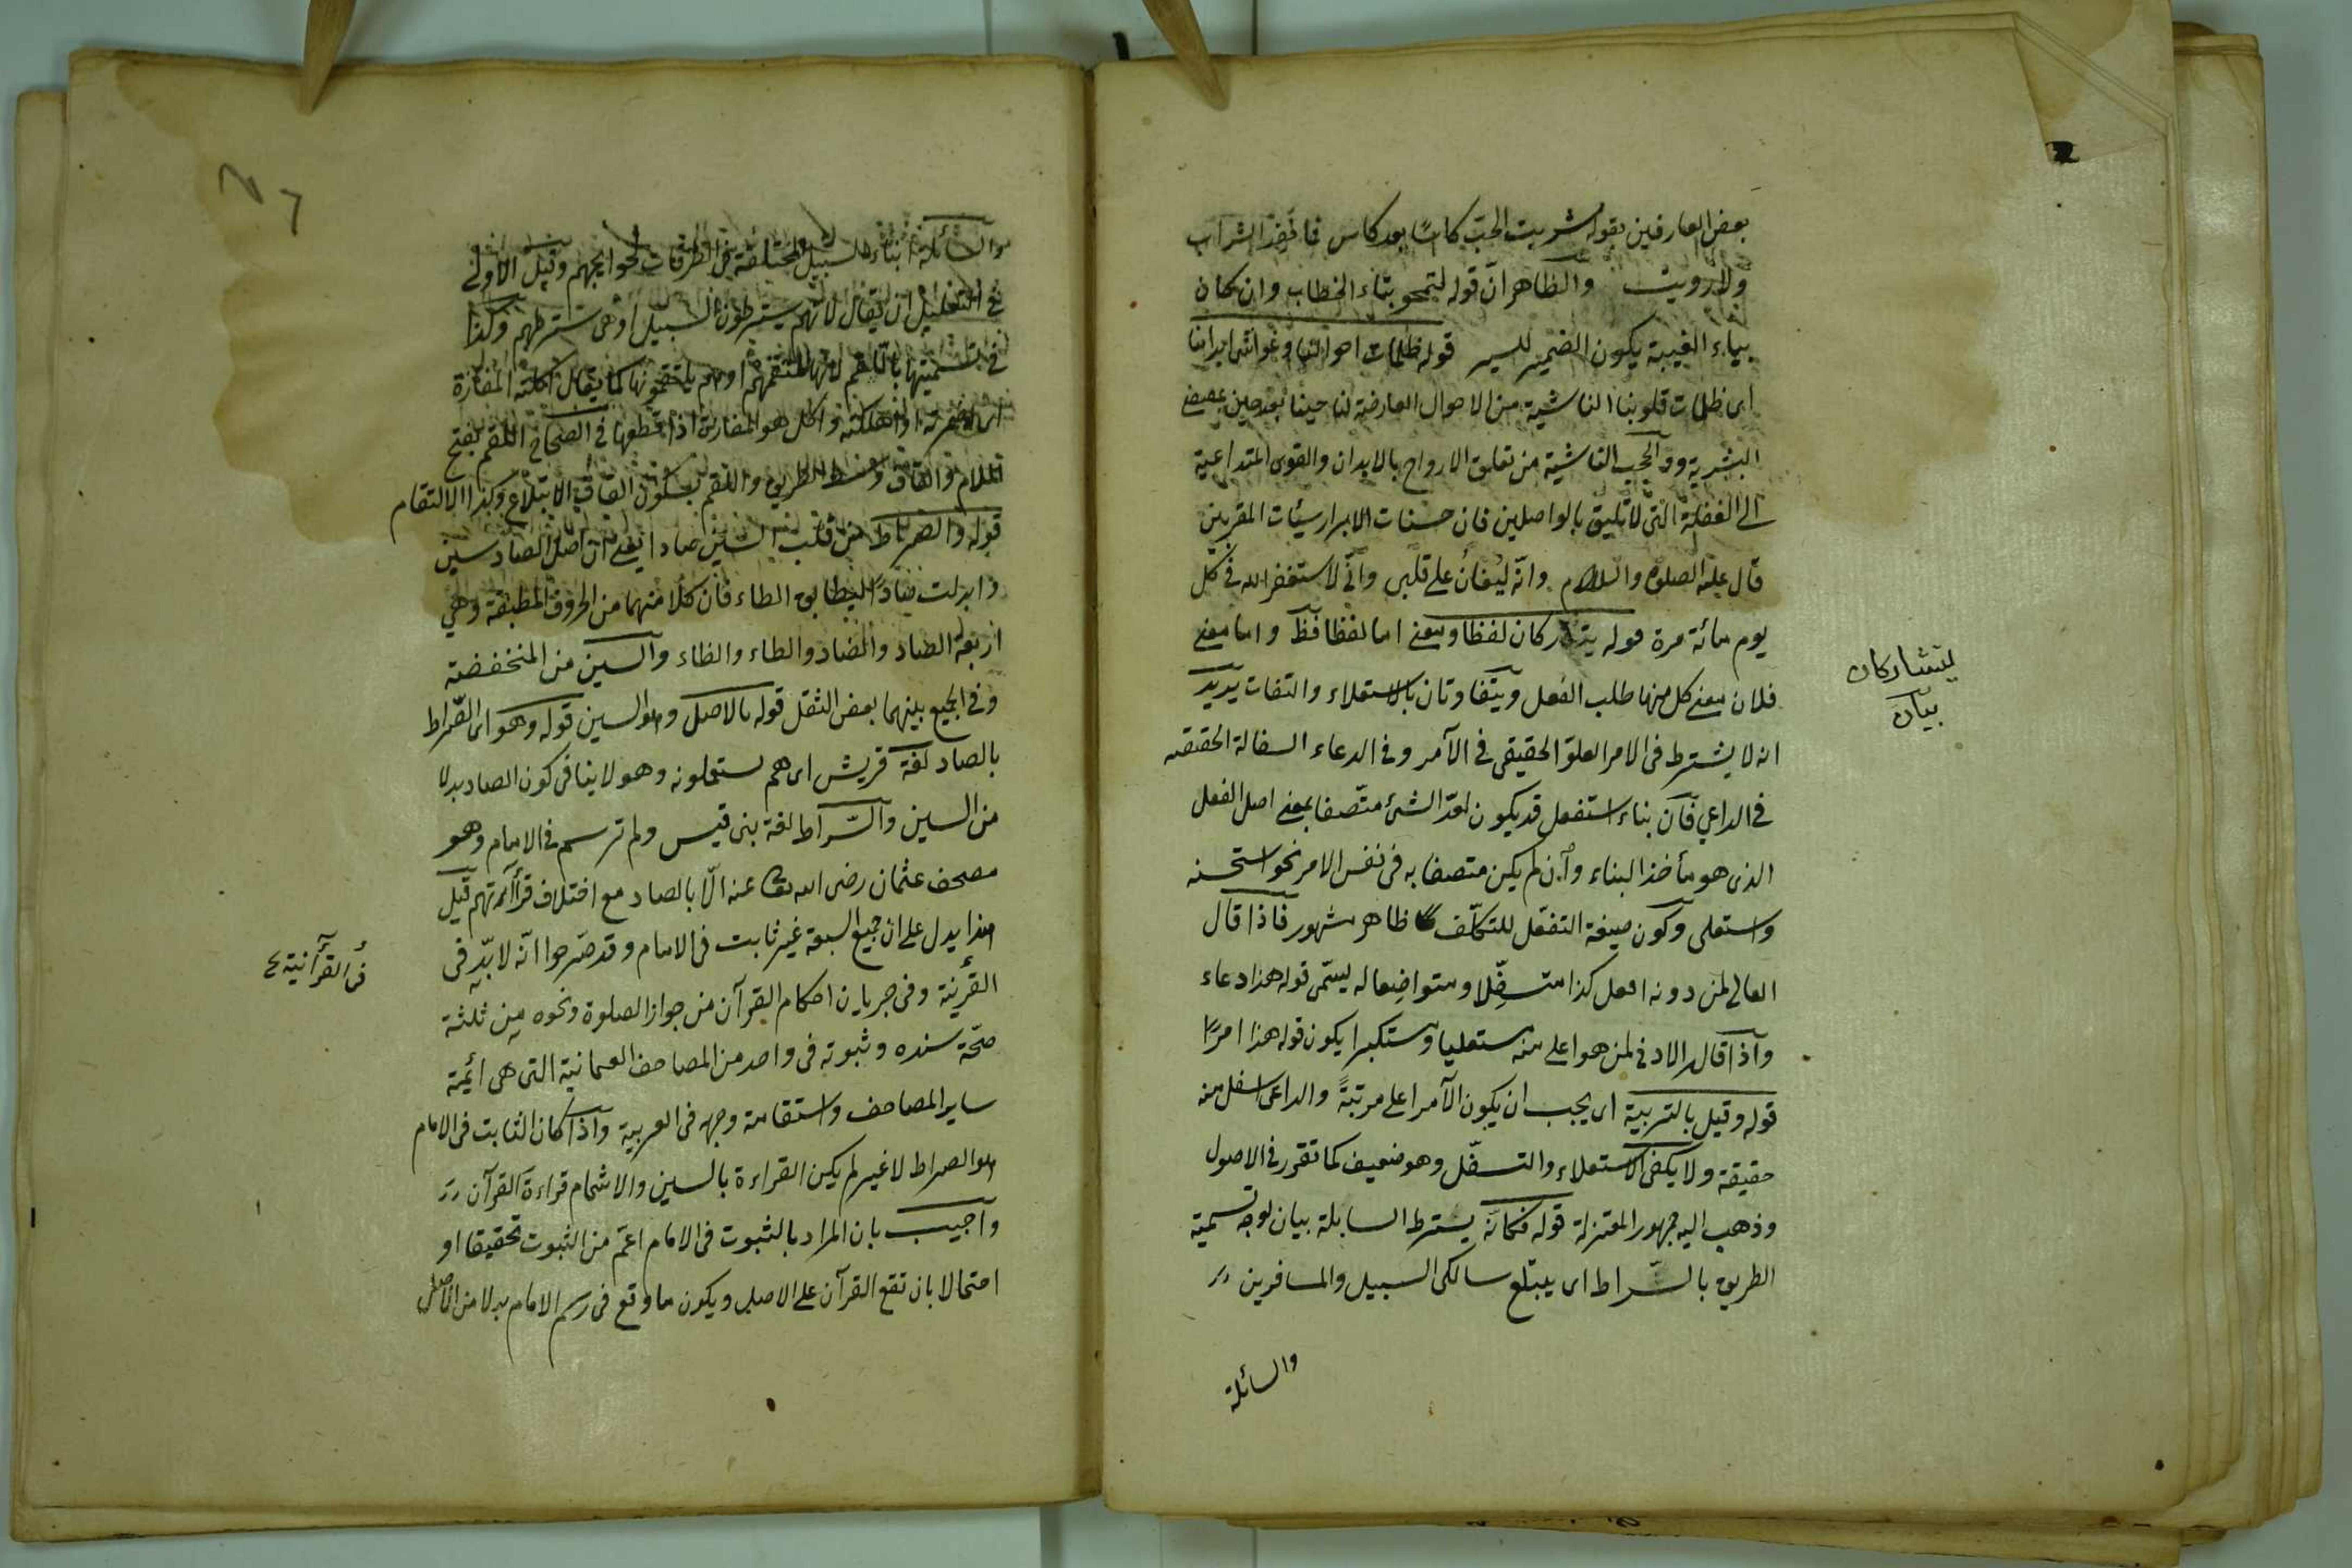 بعض العارفين بقوله شربت الحبّ كاسًا بعد كاس فما نفد الشراب
ولا رويت والظاهر انّ قوله لتمحو بتاء الخطاب وان كان
بياء الغيبة يكون الضمير للسير قوله ظلمات احوالنا وغواشى ابداننا
اى ظلمات قلوبنا الناشية من الاحوال العارضة لنا حينا بعد حين بمقتضى
البشرية والحجب الناشية من تعلق الارواح بالابدان والقوى المتداعية
الى الغفلة التى لا تليق بالواصلين فان حسنات الابرار سيّات المقربين
قال عليه الصلوة والسلام وانّه ليغان على قلبى وانّى لاستغفر الله فى كل
يوم مائة مرة قوله يتشاركان لفظا ومعنى اما لفظا فظ واما معنى
فلان معنى كل منهما طلب الفعل ويتفاوتان بالاستعلاء والتسفل يريد
انه لا يشترط فى الامر العلوّ الحقيقى فى الآمر وفى الدعاء السفالة الحقيقيه
فى الداعي فآن بناء استفعل قد يكون لعدّ الشئ متّصفا بمعنى اصل الفعل
الذى هو مأخذ البناء وآن لم يكن متصفا به فى نفس الامر نحو استحسنه
واستعلى وكون صيغة التفعّل للتكلّف ظاهر مشهور فاذا قال
العالى لمن دونه افعل كذا متسفّلا ومتواضعا له يسمّى قوله هذا دعاء
وآذا قال الادنى لمن هو اعلى منه مستعليا ومستكبرا يكون قوله هذا امرًا
قوله وقيل بالتربية اى يجب ان يكون الآمر اعلى مرتبةً والداعى اسفل منه
حقيقة ولا يكفى الاستعلاء والتسفّل وهو ضعيف كما تقرر فى الاصول
وذهب اليه جمهور المعتزلة قوله فكانّه يسترط السابلة بيان لوجه تسمية
الطريق بالسّراط اى يبتلع سالكى السبيل والمسافرين
والسائلة
يتشاركان
بيان
والسائلة ابناء السبيل المختلفة فى الطرقات لحوايجهم وقيل الاولى
فى التعليل ان يقال لانهم يسترطون السبيل او هى تسترطهم وكذا
فى تسميتها باللقم لانها تلتقمهم او هم يلتقمونها كما يقال اكلته المفازة
اى اضمرته او اهلكته واكل هو المفازة اذا قطعها فى الصحاح اللقم بفتح
اللام والقاف وسط الطريق واللقم بسكون القاف الابتلاع وكذا الالتقام
قوله والصراط من قلب السين صادا يعنى ان اصل الصاد سين
وابدلت صادًا ليطابق الطاء فان كلا منهما من الحروف المطبقة وهي
اربعة الصاد والضاد والطاء والظاء وآلسين من المنخفضة
وفى الجمع بينهما بعض الثقل قوله بالاصل وهو السين قوله وهو اى الصّراط
بالصاد لغة قريش اى هم يستعملونه وهو لا ينافى كون الصاد بدلا
من السين وآلسّراط لغة بنى قيس ولم ترسم فى الامام وهو
مصحف عثمان رضى الله تعا عنه الّا بالصاد مع اختلاف قراآتهم قيل
هذا يدل على ان جميع السبعة غير ثابت فى الامام وقد صّرحوا انّه لا بدّ فى
القرٔنية وفى جريان احكام القرآن من جواز الصلوة ونحوه من ثلثة
صحّة سنده وثبوته فى واحد من المصاحف العثمانية التى هى ائمة
ساير المصاحف واستقامة وجهه فى العربية وآذا كان الثابت فى الامام
هو الصراط لا غير لم يكن القراءة بالسين والاشمام قراءة القرآن
وآجيب بان المراد بالثبوت فى الامام اعمّ من الثبوت تحقيقا او
احتمالا بان تقع القرآن على الاصل ويكون ما وقع فى رسم الامام بدلا من الاصل
فى القرآنية